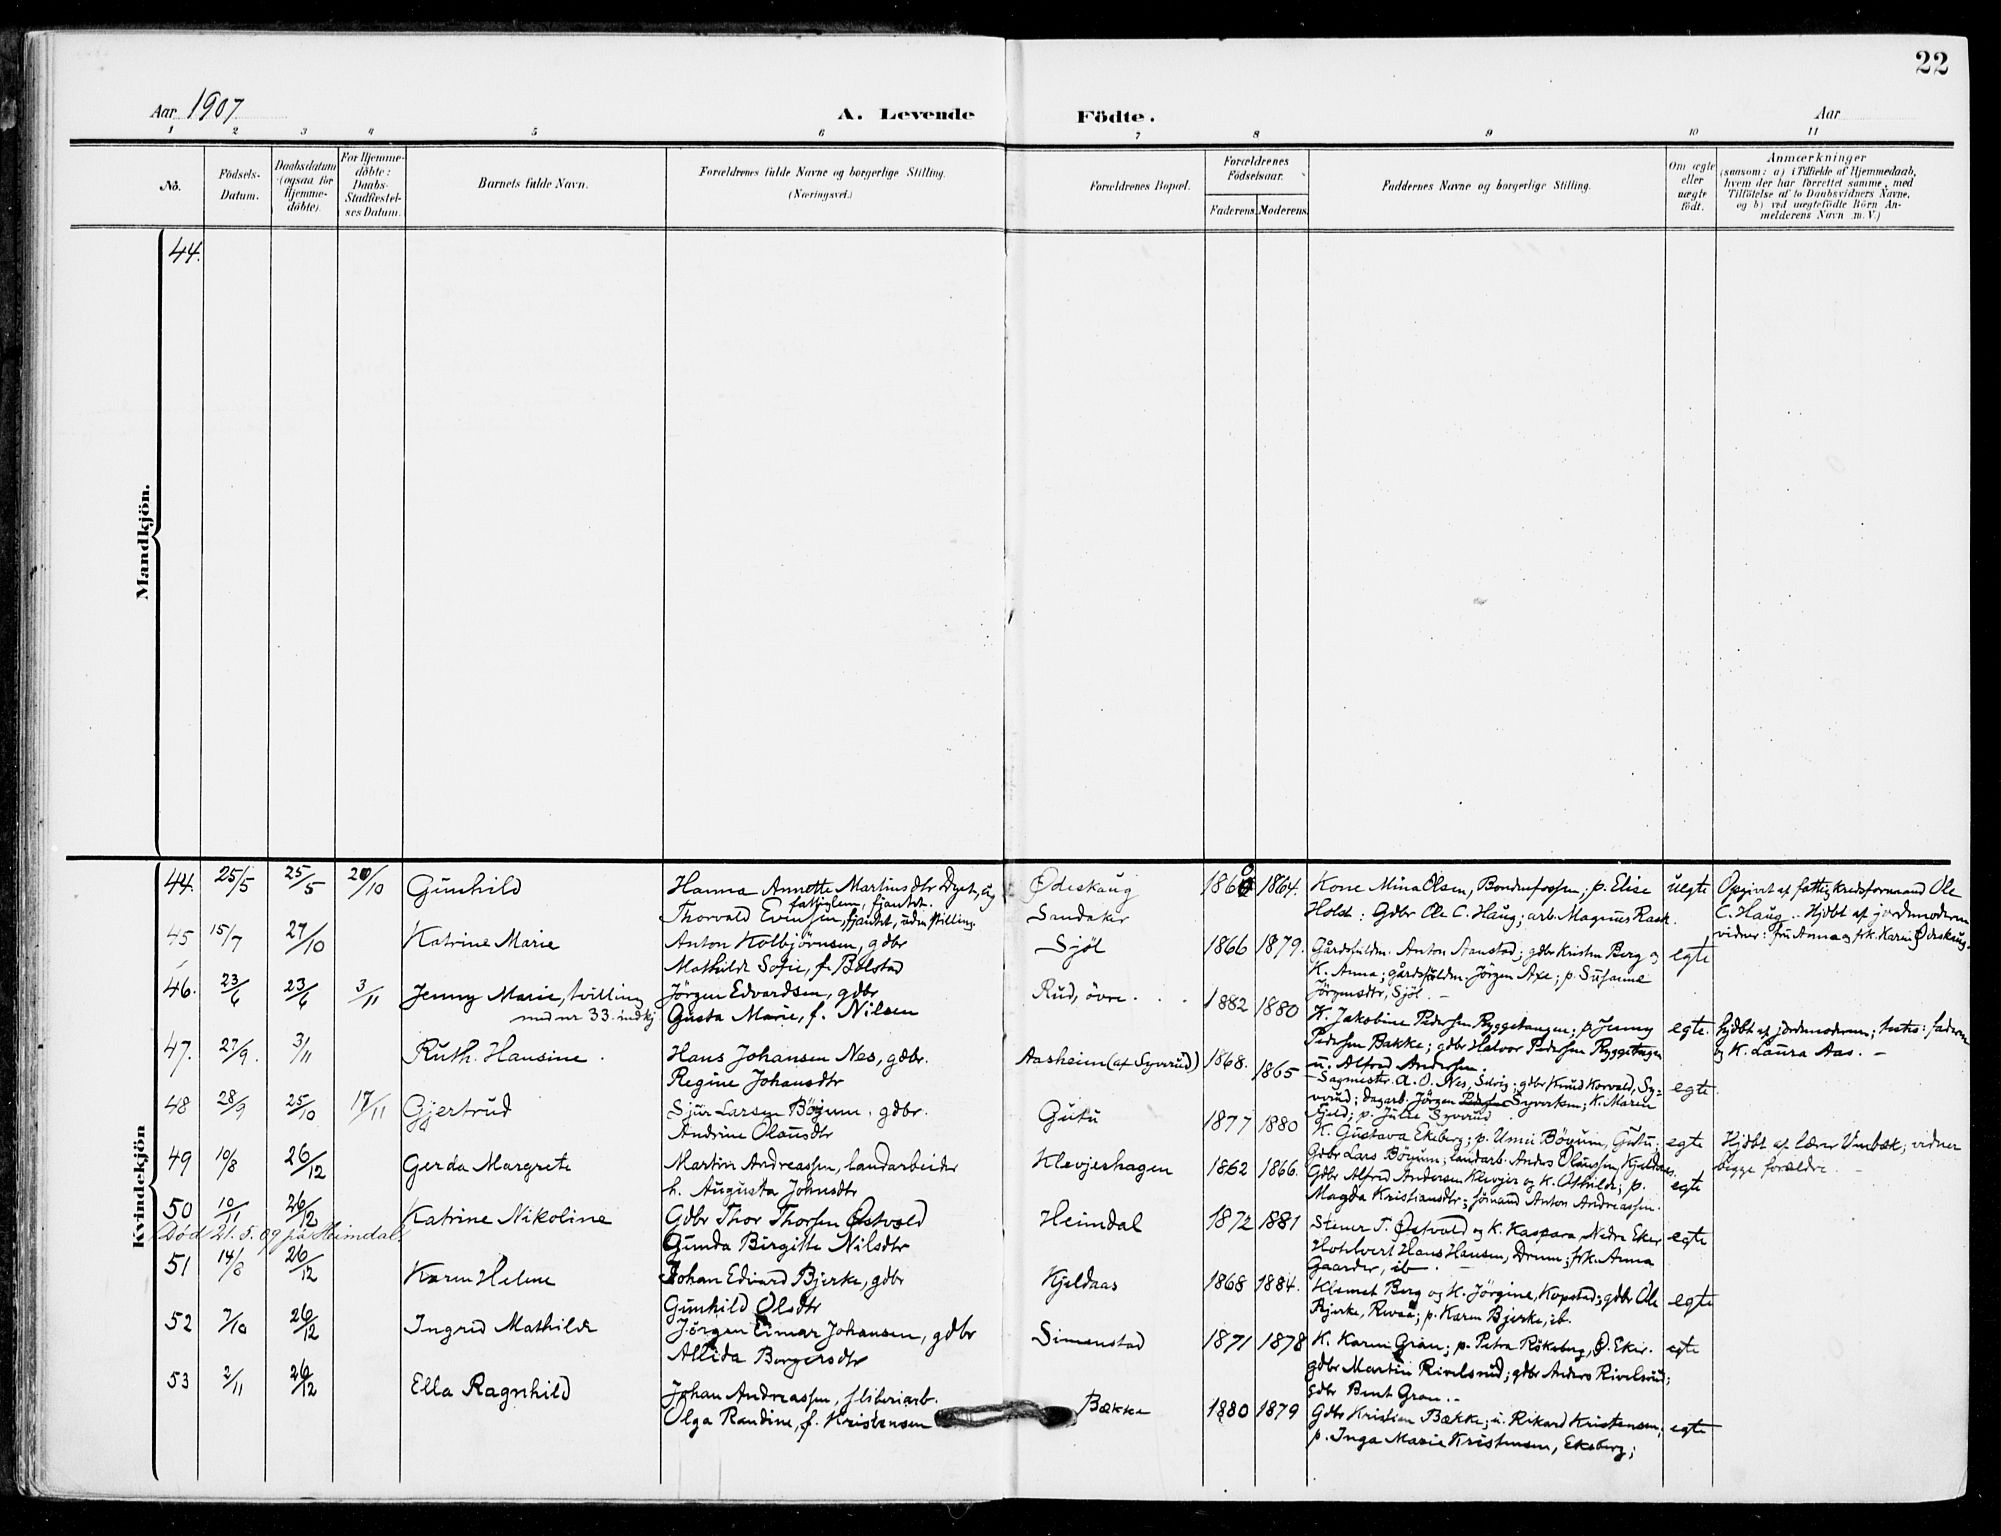 22
Aar 1907
A. Levende
Födte.
Aar
1 2 3 4 5 6 7 8 9 10 11
No.
Födsels-
Datum.
Daabsdatum
(ogsaa for
Hjemme-
döbte)
For Hjemme-
döbte:
Daabs-
Stadfæstel-
ses Datum.
Barnets fulde Navn.
Forældrenes fulde Navne og borgerlige Stilling.
(Næringsvei.)
Forældrenes Bopæl.
Forældrenes
Födselsaar.
Faderens. Moderens.
Faddernes Navne og borgerlige Stilling.
Om ægte
eller
uægte
födt.
Anmærkninger
(saasom: a) i Tilfælde af Hjemmedaab,
hvem der har forrettet samme, med
Tilföielse af to Daabsvidners Navne,
og b) ved uægtefödte Börn An-
melderens Navn m. V.)
Mandkjön.
44.
Kvindekjön
44. 25/5 25/5 20/10 Gunhild
Hanna Annette Martinsdtr
fattiglem, fjantet.
Thorvald Evensen, fjantet, uden stilling.
Ödeskaug
Sandaker
1860 1864.
Kone Mina Olsen, Bondenfossen; p. Elise
Holst: Gdbr Ole C. Haug; arb. Magnus Rask.
uegte
Opgivet af fattigkredsformand Ole
C. Haug. Hjdbt af jordemoderen
vidner: fru Anna og frk. Karen Ödeskaug.
45 15/7 27/10 Katrine Marie
Anton Kolbjörnsen, gdbr
Mathilde Sofie, f. Bolstad
Sjöl
1866 1879.
Gårdsfuldm. Anton Aanstad; gdbr Kristen Berg og
K. Anna; gårdsfuldm. Jörgen Axe; p. Susanne
Jörgensdtr, Sjöl. -
egte
46. 23/6 23/6 3/11 Jenny Marie, tvilling
med nr 33. mdkj
Jörgen Edvardsen, gdbr
Gusta Marie, f. Nilsen
Rud, övre.
1882 1880
K. Jakobine Pedersen Ryggetangen; p. Jenny
Pedersen Bakke; gdbr Halvor Pedersen Ryggetangen
u. Alfred Andersen.
egte.
hjdbt af jordemoderen; testes: faderen
og K. Laura Aas. -
47. 27/9. 3/11 Ruth Hansine.
Hans Johansen Nes, gdbr.
Regine Johansdtr
Aasheim (af Syvrud)
1868. 1865
Sagmester A. O. Nes, Selvig; gdbr Knud Korvald, Sy-
vrud; dagarb. Jörgen Syvertsen; K. Maren
Fjeld; p. Julie Syvrud
egte.
48 28/9 25/10 17/11 Gjertrud
Sjur Larsen Böyum, gdbr.
Andrine Olausdtr
Gutu
1877 1880
K. Gustava Ekeberg; p. Unni Böyum, Gutu;
Gdbr Lars Böyum; landarb. Anders Olaussen, Kjeldaas.
egte
Hjdbt af lærer Vinbæk; vidner
begge forældre. -
49 10/8 26/12 Gerda Margrete
Martin Andreassen, landarbeider
h. Augusta Johnsdtr
Klevjerhagen
1862 1866.
Gdbr Alfred Andersen Klevjer og K. Othilde; p.
Magda Kristiansdtr; sömand Anton Andreassen.
egte
50 10/11 26/12 Katrine Nikoline
Död 21. 5. 09 på Heimdal
Gdbr Thor Thorsen Östvold
Gunda Birgitte Nilsdtr
Heimdal
1872 1881
Stener T. Östvold og K. Kaspara, Nedre Eker
Hotelvert Hans Hansen, Drmn; frk. Anna
Gaarder, ib.
egte
51 14/8 26/12 Karen Helene
Johan Edvard Bjerke, gdbr
Gunhild Olsdtr
Kjeldaas
1868 1884.
Klemet Berg og K. Jörgine, Kopstad; gdbr Ole
Bjerke, Revaa; p. Karen Bjerke, ib.
egte
52 7/10 26/12 Ingrid Mathilde
Jörgen Einar Johansen, gdbr
Allida Borgersdtr
Simenstad
1871 1878
K. Karen Gran; p. Petra Rökeberg, Ö. Eker.
gdbr Martin Rivelsrud; gdbr Anders Rivelsrud;
gdbr Bent Gran. -
egte
53 2/11 26/12 Ella Ragnhild
Johan Andreassen, sliberiarb.
Olga Randine, f. Kristensen
Bække
1880 1879
Gdbr Kristian Bække; u. Rikard Kristensen;
p. Inga Marie Kristensen, Ekeberg;
egte